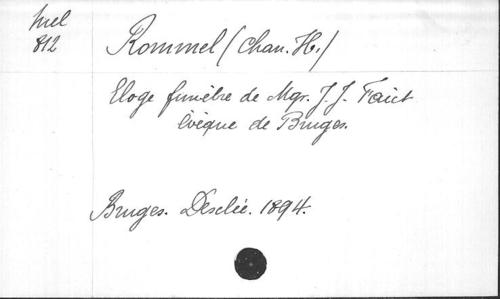 Mel
812
Rommel (Chan. H.)
Eloge funèbre de Mgr. J. J. Faict
évêque de Bruges.
Bruges. Desclée. 1894.